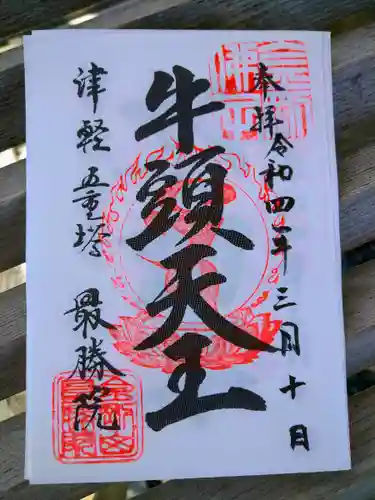 奉拝 令和四年三月十日
牛頭天王
津軽五重塔 最勝院